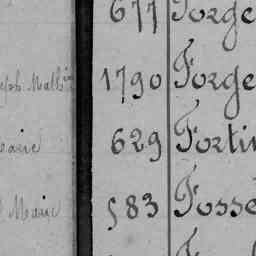 677 Forge
eph Math^in 1790 Forge
Marie 629 Fortin
Marie 583 Fosse